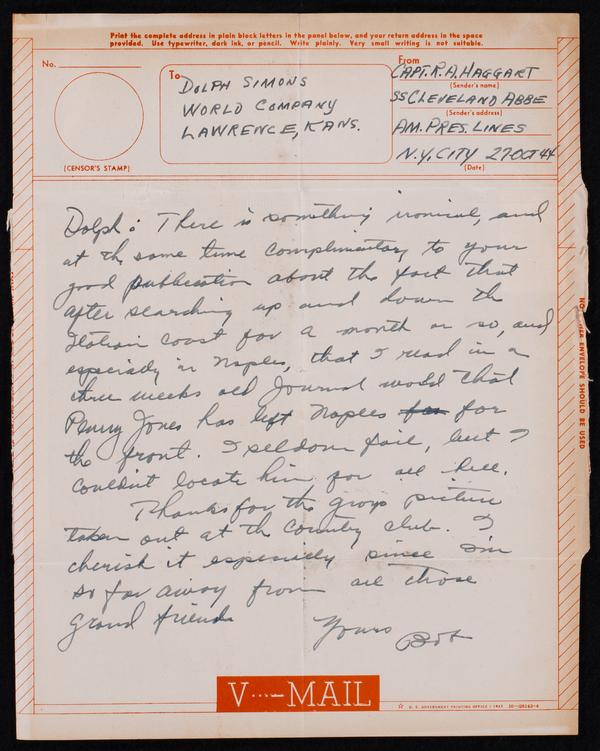 Print the complete address in plain block letters in the panel below, and your return address in the space
provided. Use typewriter, dark ink, or pencil. Write plainly. Very small writing is not suitable.
No.
(CENSOR'S STAMP)
To
DOLPH SIMONS
WORLD COMPANY
LAWRENCE, KANS.
From
CAPT. R. A. HAGGART
(Sender's name)
SS CLEVELAND ABBE
(Sender's address)
AM. PRES. LINES
N.Y. CITY 27 OCT 44
(Date)
Dolph: There is something ironical, and
at the same time complimentary to your
good publication about the fact that
after searching up and down the
Italian coast for a month or so, and
especially in Naples, that I read in a
three weeks old Journal world that
Penny Jones has left Naples for for
the front. I seldom fail, but I
couldn't locate him for all hell.
Thanks for the group picture
taken out at the Country club. I
cherish it especially since I'm
so far away from all those
grand friends
Yours Bob
NO OTHER ENVELOPE SHOULD BE USED
V···—MAIL
U. S. GOVERNMENT PRINTING OFFICE : 1943 16—28143-4